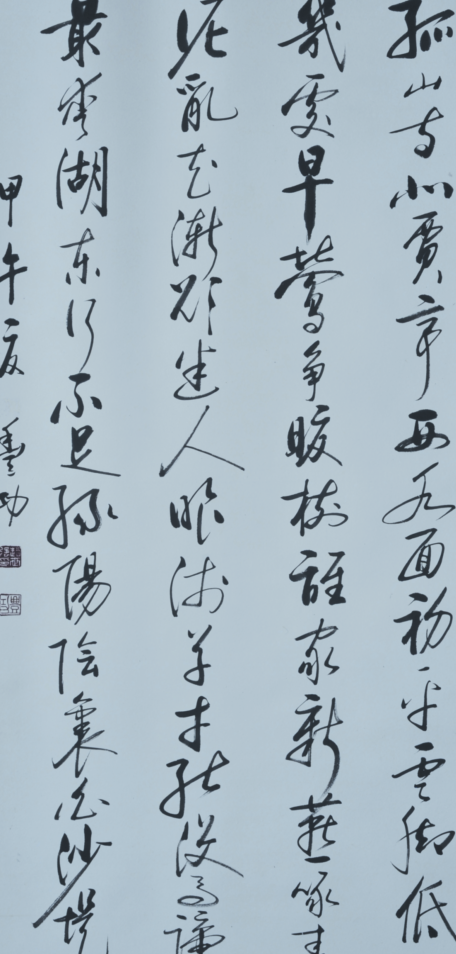 孤山寺北賈亭西水面初平雲脚低
幾處早鶯爭暖樹誰家新燕啄春
泥亂花漸欲迷人眼淺草才能没馬蹄
最愛湖東行不足綠陽陰裏白沙堤
甲午夏